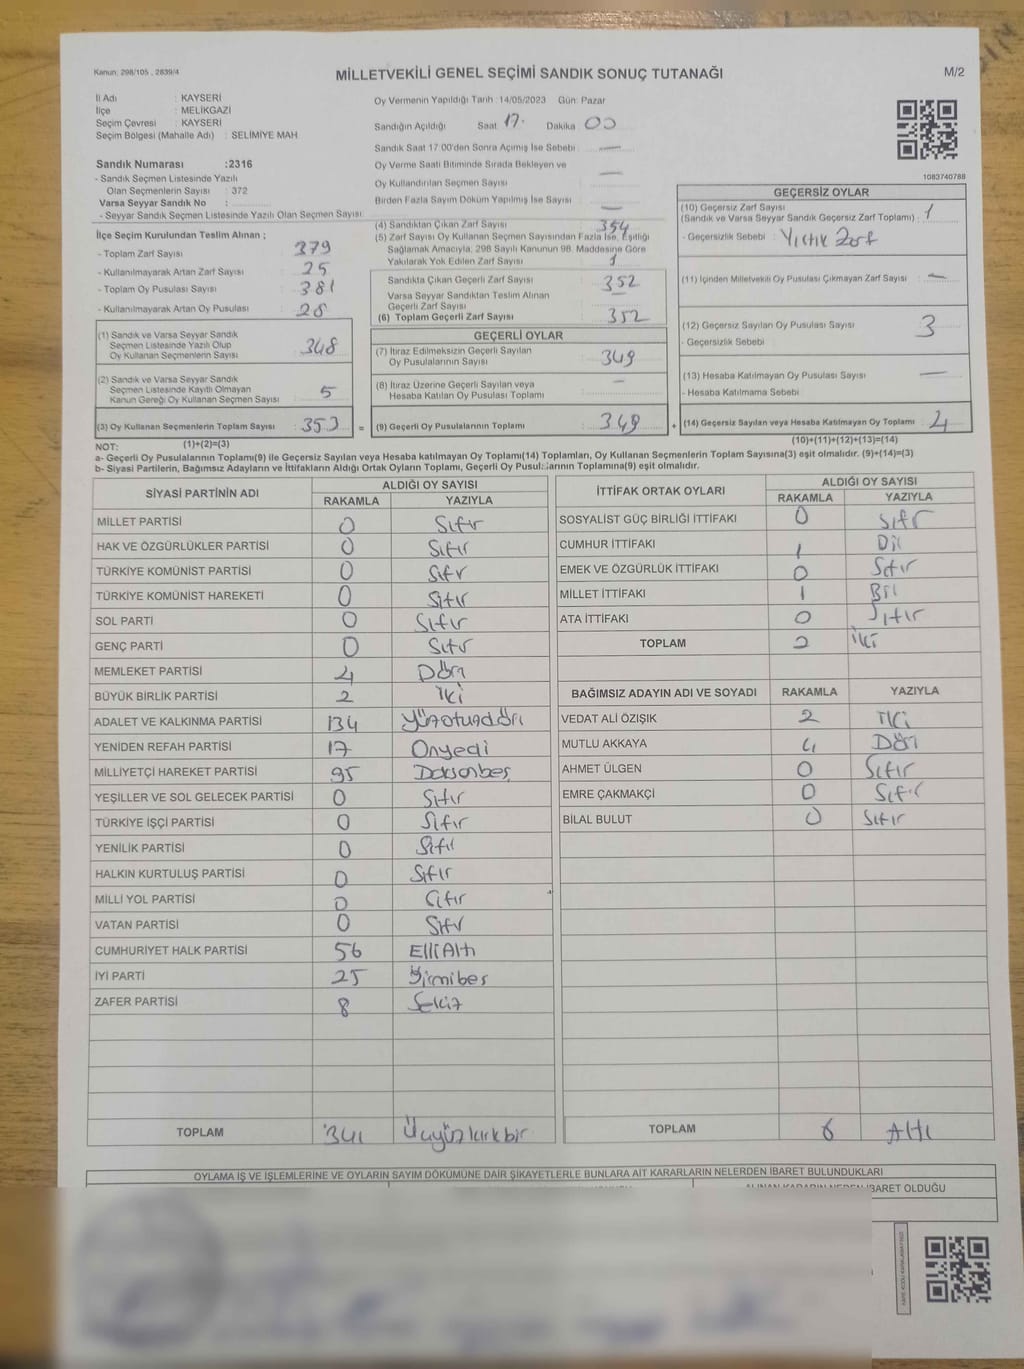 Kanun: 298/105 , 2839/4
MİLLETVEKİLİ GENEL SEÇİMİ SANDIK SONUÇ TUTANAĞI
M/2
İl Adı : KAYSERİ
İlçe : MELİKGAZİ
Seçim Çevresi : KAYSERİ
Seçim Bölgesi (Mahalle Adı) : SELİMİYE MAH
Sandık Numarası :2316
- Sandık Seçmen Listesinde Yazılı
Olan Seçmenlerin Sayısı : 372
Varsa Seyyar Sandık No :
- Seyyar Sandık Seçmen Listesinde Yazılı Olan Seçmen Sayısı
İlçe Seçim Kurulundan Teslim Alınan ;
- Toplam Zarf Sayısı 379
- Kullanılmayarak Artan Zarf Sayısı 25
- Toplam Oy Pusulası Sayısı 381
- Kullanılmayarak Artan Oy Pusulası 28
(1) Sandık ve Varsa Seyyar Sandık
Seçmen Listesinde Yazılı Olup
Oy Kullanan Seçmenlerin Sayısı 348
(2) Sandık ve Varsa Seyyar Sandık
Seçmen Listesinde Kayıtlı Olmayan
Kanun Gereği Oy Kullanan Seçmen Sayısı 5
(3) Oy Kullanan Seçmenlerin Toplam Sayısı : 353 =
Oy Vermenin Yapıldığı Tarih :14/05/2023 Gün: Pazar
Sandığın Açıldığı Saat 17. Dakika 00
Sandık Saat 17 00'den Sonra Açımış İse Sebebi : —
Oy Verme Saati Bitiminde Sırada Bekleyen ve
Oy Kullandırılan Seçmen Sayısı —
Birden Fazla Sayım Döküm Yapılmış İse Sayısı —
(4) Sandıktan Çıkan Zarf Sayısı 354
(5) Zarf Sayısı Oy Kullanan Seçmen Sayısından Fazla İse, Eşitliği
Sağlamak Amacıyla, 298 Sayılı Kanunun 98. Maddesine Göre
Yakılarak Yok Edilen Zarf Sayısı 1
Sandıkta Çıkan Geçerli Zarf Sayısı 352
Varsa Seyyar Sandıktan Teslim Alınan
Geçerli Zarf Sayısı —
(6) Toplam Geçerli Zarf Sayısı 352
GEÇERLİ OYLAR
(7) İtiraz Edilmeksizin Geçerli Sayılan
Oy Pusulalarının Sayısı 349
(8) İtiraz Üzerine Geçerli Sayılan veya
Hesaba Katılan Oy Pusulası Toplamı —
(9) Geçerli Oy Pusulalarının Toplamı 349 +
1083740788
GEÇERSİZ OYLAR
(10) Geçersiz Zarf Sayısı
(Sandık ve Varsa Seyyar Sandık Geçersiz Zarf Toplamı) : 1
- Geçersizlik Sebebi : Yırtık Zarf
(11) İçinden Milletvekili Oy Pusulası Çıkmayan Zarf Sayısı : —
(12) Geçersiz Sayılan Oy Pusulası Sayısı 3
- Geçersizlik Sebebi
(13) Hesaba Katılmayan Oy Pusulası Sayısı —
- Hesaba Katılmama Sebebi
(14) Geçersiz Sayılan veya Hesaba Katılmayan Oy Toplamı 4
NOT: (1)+(2)=(3) (10)+(11)+(12)+(13)=(14)
a- Geçerli Oy Pusulalarının Toplamı(9) ile Geçersiz Sayılan veya Hesaba katılmayan Oy Toplamı(14) Toplamları, Oy Kullanan Seçmenlerin Toplam Sayısına(3) eşit olmalıdır. (9)+(14)=(3)
b- Siyasi Partilerin, Bağımsız Adayların ve İttifakların Aldığı Ortak Oyların Toplamı, Geçerli Oy Pusulalarının Toplamına(9) eşit olmalıdır.
SİYASİ PARTİNİN ADI ALDIĞI OY SAYISI
RAKAMLA YAZIYLA
MİLLET PARTİSİ 0 Sıfır
HAK VE ÖZGÜRLÜKLER PARTİSİ 0 Sıfır
TÜRKİYE KOMÜNİST PARTİSİ 0 Sıfır
TÜRKİYE KOMÜNİST HAREKETİ 0 Sıfır
SOL PARTİ 0 Sıfır
GENÇ PARTİ 0 Sıfır
MEMLEKET PARTİSİ 4 Dört
BÜYÜK BİRLİK PARTİSİ 2 İki
ADALET VE KALKINMA PARTİSİ 134 Yüzotuzdört
YENİDEN REFAH PARTİSİ 17 Onyedi
MİLLİYETÇİ HAREKET PARTİSİ 95 Doksanbeş
YEŞİLLER VE SOL GELECEK PARTİSİ 0 Sıfır
TÜRKİYE İŞÇİ PARTİSİ 0 Sıfır
YENİLİK PARTİSİ 0 Sıfır
HALKIN KURTULUŞ PARTİSİ 0 Sıfır
MİLLİ YOL PARTİSİ 0 Sıfır
VATAN PARTİSİ 0 Sıfır
CUMHURİYET HALK PARTİSİ 56 Elli Altı
İYİ PARTİ 25 Yirmibeş
ZAFER PARTİSİ 8 Sekiz
TOPLAM 341 Üçyüzkırkbir
İTTİFAK ORTAK OYLARI ALDIĞI OY SAYISI
RAKAMLA YAZIYLA
SOSYALİST GÜÇ BİRLİĞİ İTTİFAKI 0 Sıfır
CUMHUR İTTİFAKI 1 Bir
EMEK VE ÖZGÜRLÜK İTTİFAKI 0 Sıfır
MİLLET İTTİFAKI 1 Bir
ATA İTTİFAKI 0 Sıfır
TOPLAM 2 İki
BAĞIMSIZ ADAYIN ADI VE SOYADI RAKAMLA YAZIYLA
VEDAT ALİ ÖZIŞIK 2 İki
MUTLU AKKAYA 4 Dört
AHMET ÜLGEN 0 Sıfır
EMRE ÇAKMAKÇİ 0 Sıfır
BİLAL BULUT 0 Sıfır
TOPLAM 6 Altı
OYLAMA İŞ VE İŞLEMLERİNE VE OYLARIN SAYIM DÖKÜMÜNE DAİR ŞİKAYETLERLE BUNLARA AİT KARARLARIN NELERDEN İBARET BULUNDUKLARI
ALINAN KARARIN NEDEN İBARET OLDUĞU